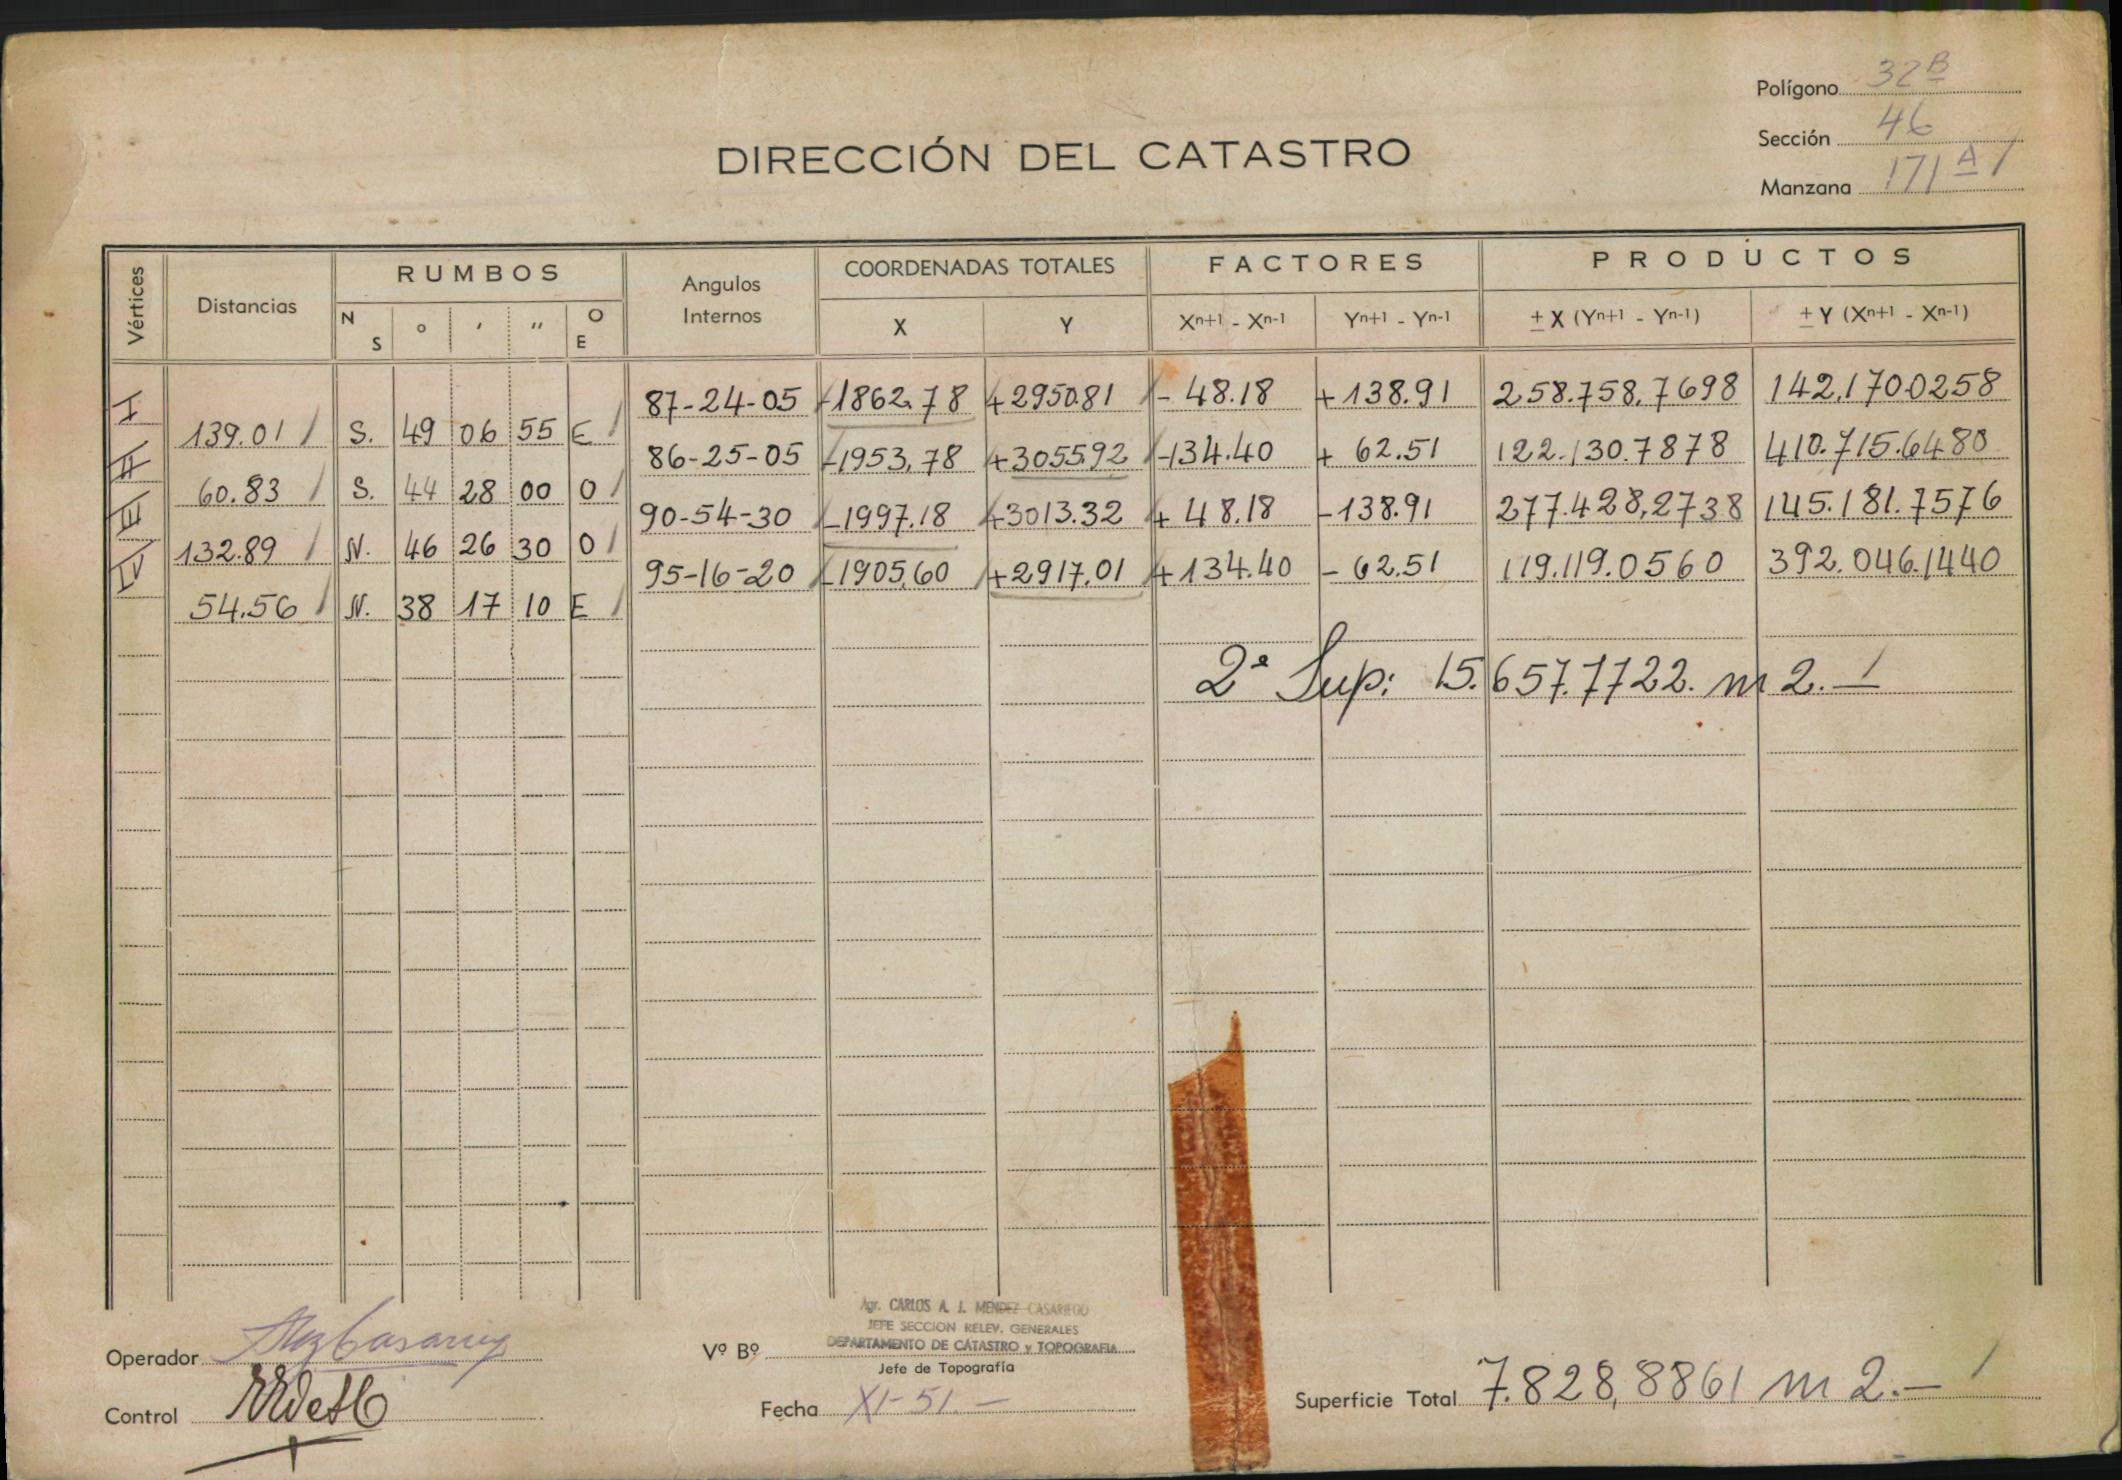 Polígono 32B
Sección 46
Manzana 171A
DIRECCIÓN DEL CATASTRO
Vértices Distancias RUMBOS Angulos Internos COORDENADAS TOTALES FACTORES PRODUCTOS
N S o ' '' O E X Y Xn+1 - Xn-1 Yn+1 - Yn-1 ± X (Yn+1 - Yn-1) ± Y (Xn+1 - Xn-1)
I 87-24-05 -1862.78 +2950.81 - 48.18 +138.91 258.758.7698 142.170.0258
139.01 S. 49 06 55 E
II 86-25-05 -1953,78 +3055.92 -134.40 + 62.51 122.130.7878 410.715.6480
60.83 S. 44 28 00 O
III 90-54-30 -1997.18 +3013.32 + 48.18 -138.91 277.428,2738 145.181.7576
132.89 N. 46 26 30 O
IV 95-16-20 -1905,60 +2917.01 +134.40 - 62.51 119.119.0560 392.046.1440
54.56 N. 38 17 10 E
2ª Sup: 15.657.7722. m2.-
Agr. CARLOS A. J. MENDEZ CASARIEGO
JEFE SECCION RELEV. GENERALES
Operador
Vº Bº DEPARTAMENTO DE CATASTRO y TOPOGRAFIA
Jefe de Topografía
Control
Fecha XI-51.-
Superficie Total 7.828,8861 m2.-